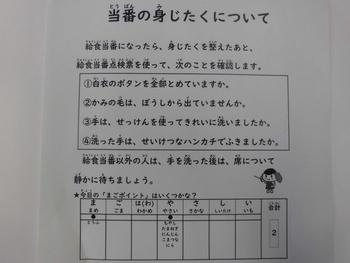 当番の身じたくについて
給食当番になったら、身じたくを整えたあと、
給食当番点検票を使って、次のことを確認します。
①白衣のボタンを全部とめていますか。
②かみの毛は、ぼうしから出ていませんか。
③手は、せっけんを使ってきれいに洗いましたか。
④洗った手は、せいけつなハンカチでふきましたか。
給食当番以外の人は、手を洗った後は、席について
静かに待ちましょう。
★今日の「まごポイント」はいくつかな?
ま ご は(わ) や さ し い 合計
まめ ごま わかめ やさい さかな しいたけ いも
● ●
とうふ もやし 2
たまねぎ
にんじん
こまつな
にら